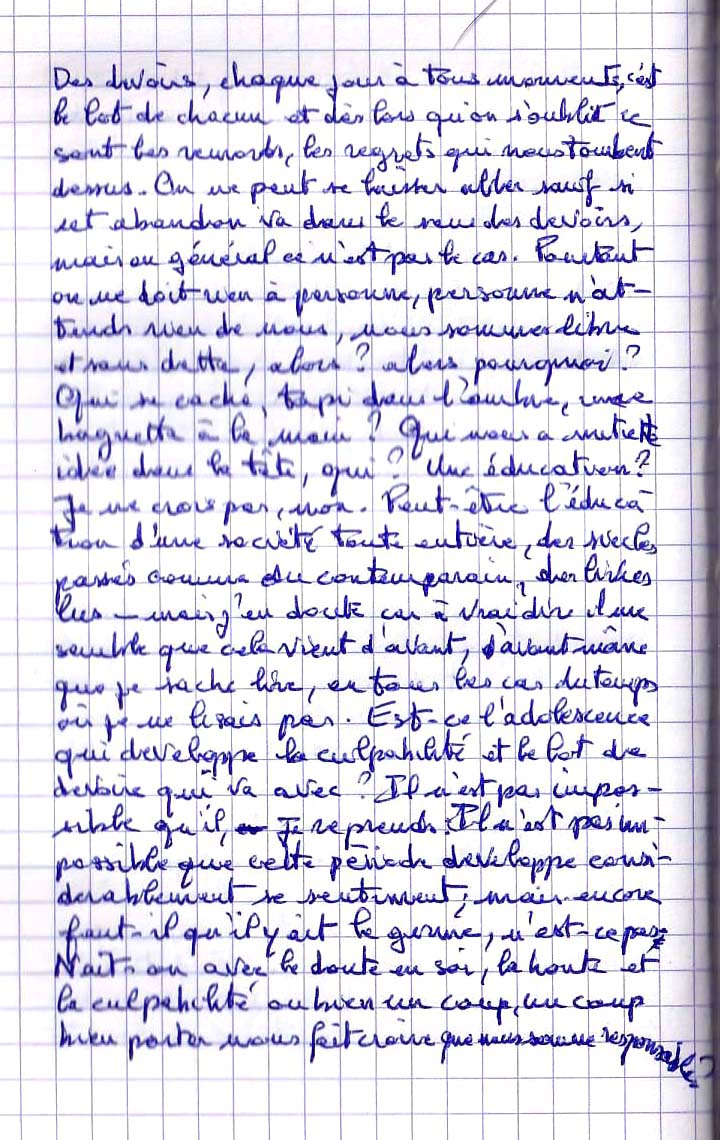 Des devoirs, chaque jour à tous moments, c'est
le lot de chacun et dès lors qu'on s'oublit ce
sont les remords, les regrets qui nous tombent
dessus. On ne peut se laisser aller sauf si
cet abandon va dans le sens des devoirs,
mais en général ce n'est pas le cas. Pourtant
on ne doit rien à personne, personne n'at-
tends rien de nous, nous sommes libre
et sans dette, alors ? alors pourquoi ?
Qui se cache, tapi dans l'ombre, une
baguette à la main ? Qui nous a mis cette
idée dans la tête, qui ? Une éducation ?
Je ne crois pas, non. Peut-être l'éduca-
tion d'une société toute entière, des siècles
passés comme du contemparain, des livres
lus – mais j'en doute car à vrai dire il me
semble que cela vient d'avant, d'avant même
que je sache lire, en tous les cas du temps
où je ne lisais pas. Est-ce l'adolescence
qui developpe la culpabilité et le lot de
devoirs qui va avec ? Il n'est pas impos-
sible qu'il, Je reprends : Il n'est pas im-
possible que cette période developpe consi-
derablement se sentiment, mais encore
faut-il qu'il y ait le germe, n'est-ce pas ?
Nait-on avec le doute en soi, la honte et
la culpabilité ou bien un coup, un coup
bien porter nous fait croire que nous somme responsables ?